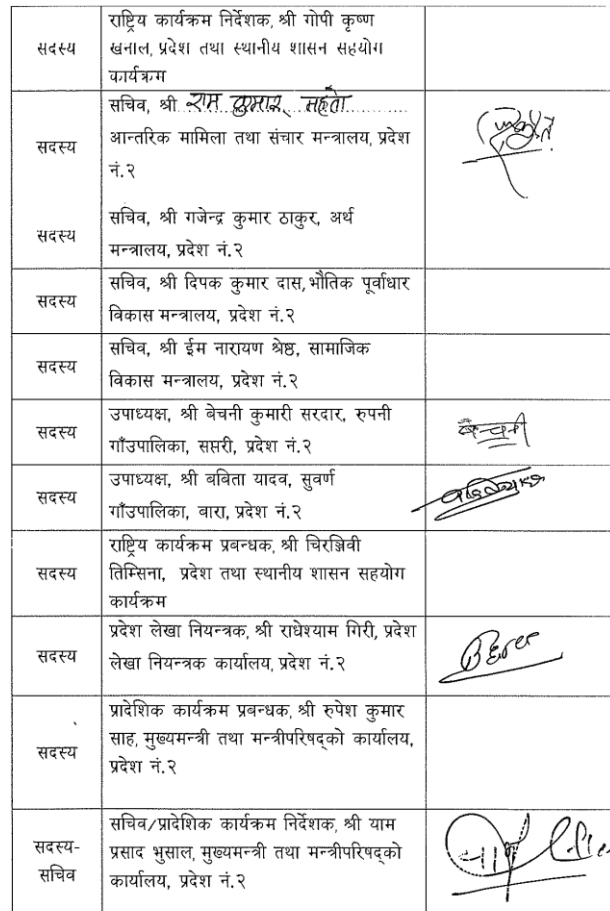 राष्ट्रिय कार्यक्रम निर्देशक, श्री गोपी कृष्ण
सदस्य
खनाल, प्रदेश तथा स्थानीय शासन सहयोग
कार्यक्रम
सचिव, श्री राम कुमार महतो
सदस्य
आन्तरिक मामिला तथा संचार मन्त्रालय, प्रदेश
नं.२
सचिव, श्री गजेन्द्र कुमार ठाकुर, अर्थ
सदस्य
मन्त्रालय, प्रदेश नं.२
सचिव, श्री दिपक कुमार दास, भौतिक पूर्वाधार
सदस्य
विकास मन्त्रालय, प्रदेश नं.२
सचिव, श्री ईम नारायण श्रेष्ठ, सामाजिक
सदस्य
विकास मन्त्रालय, प्रदेश नं.२
उपाध्यक्ष, श्री बेचनी कुमारी सरदार, रुपनी
सदस्य
गाँउपालिका, सप्तरी, प्रदेश नं.२
बेचनी
उपाध्यक्ष, श्री बबिता यादव, सुवर्ण
सदस्य
गाँउपालिका, बारा, प्रदेश नं.२
राष्ट्रिय कार्यक्रम प्रबन्धक, श्री चिरञ्जिवी
सदस्य
तिम्सिना, प्रदेश तथा स्थानीय शासन सहयोग
कार्यक्रम
प्रदेश लेखा नियन्त्रक, श्री राधेश्याम गिरी, प्रदेश
सदस्य
लेखा नियन्त्रक कार्यालय, प्रदेश नं.२
प्रादेशिक कार्यक्रम प्रबन्धक, श्री रुपेश कुमार
सदस्य
साह, मुख्यमन्त्री तथा मन्त्रीपरिषद्को कार्यालय,
प्रदेश नं.२
सचिव/प्रादेशिक कार्यक्रम निर्देशक, श्री याम
सदस्य-
प्रसाद भुसाल, मुख्यमन्त्री तथा मन्त्रीपरिषद्को
सचिव
कार्यालय, प्रदेश नं.२